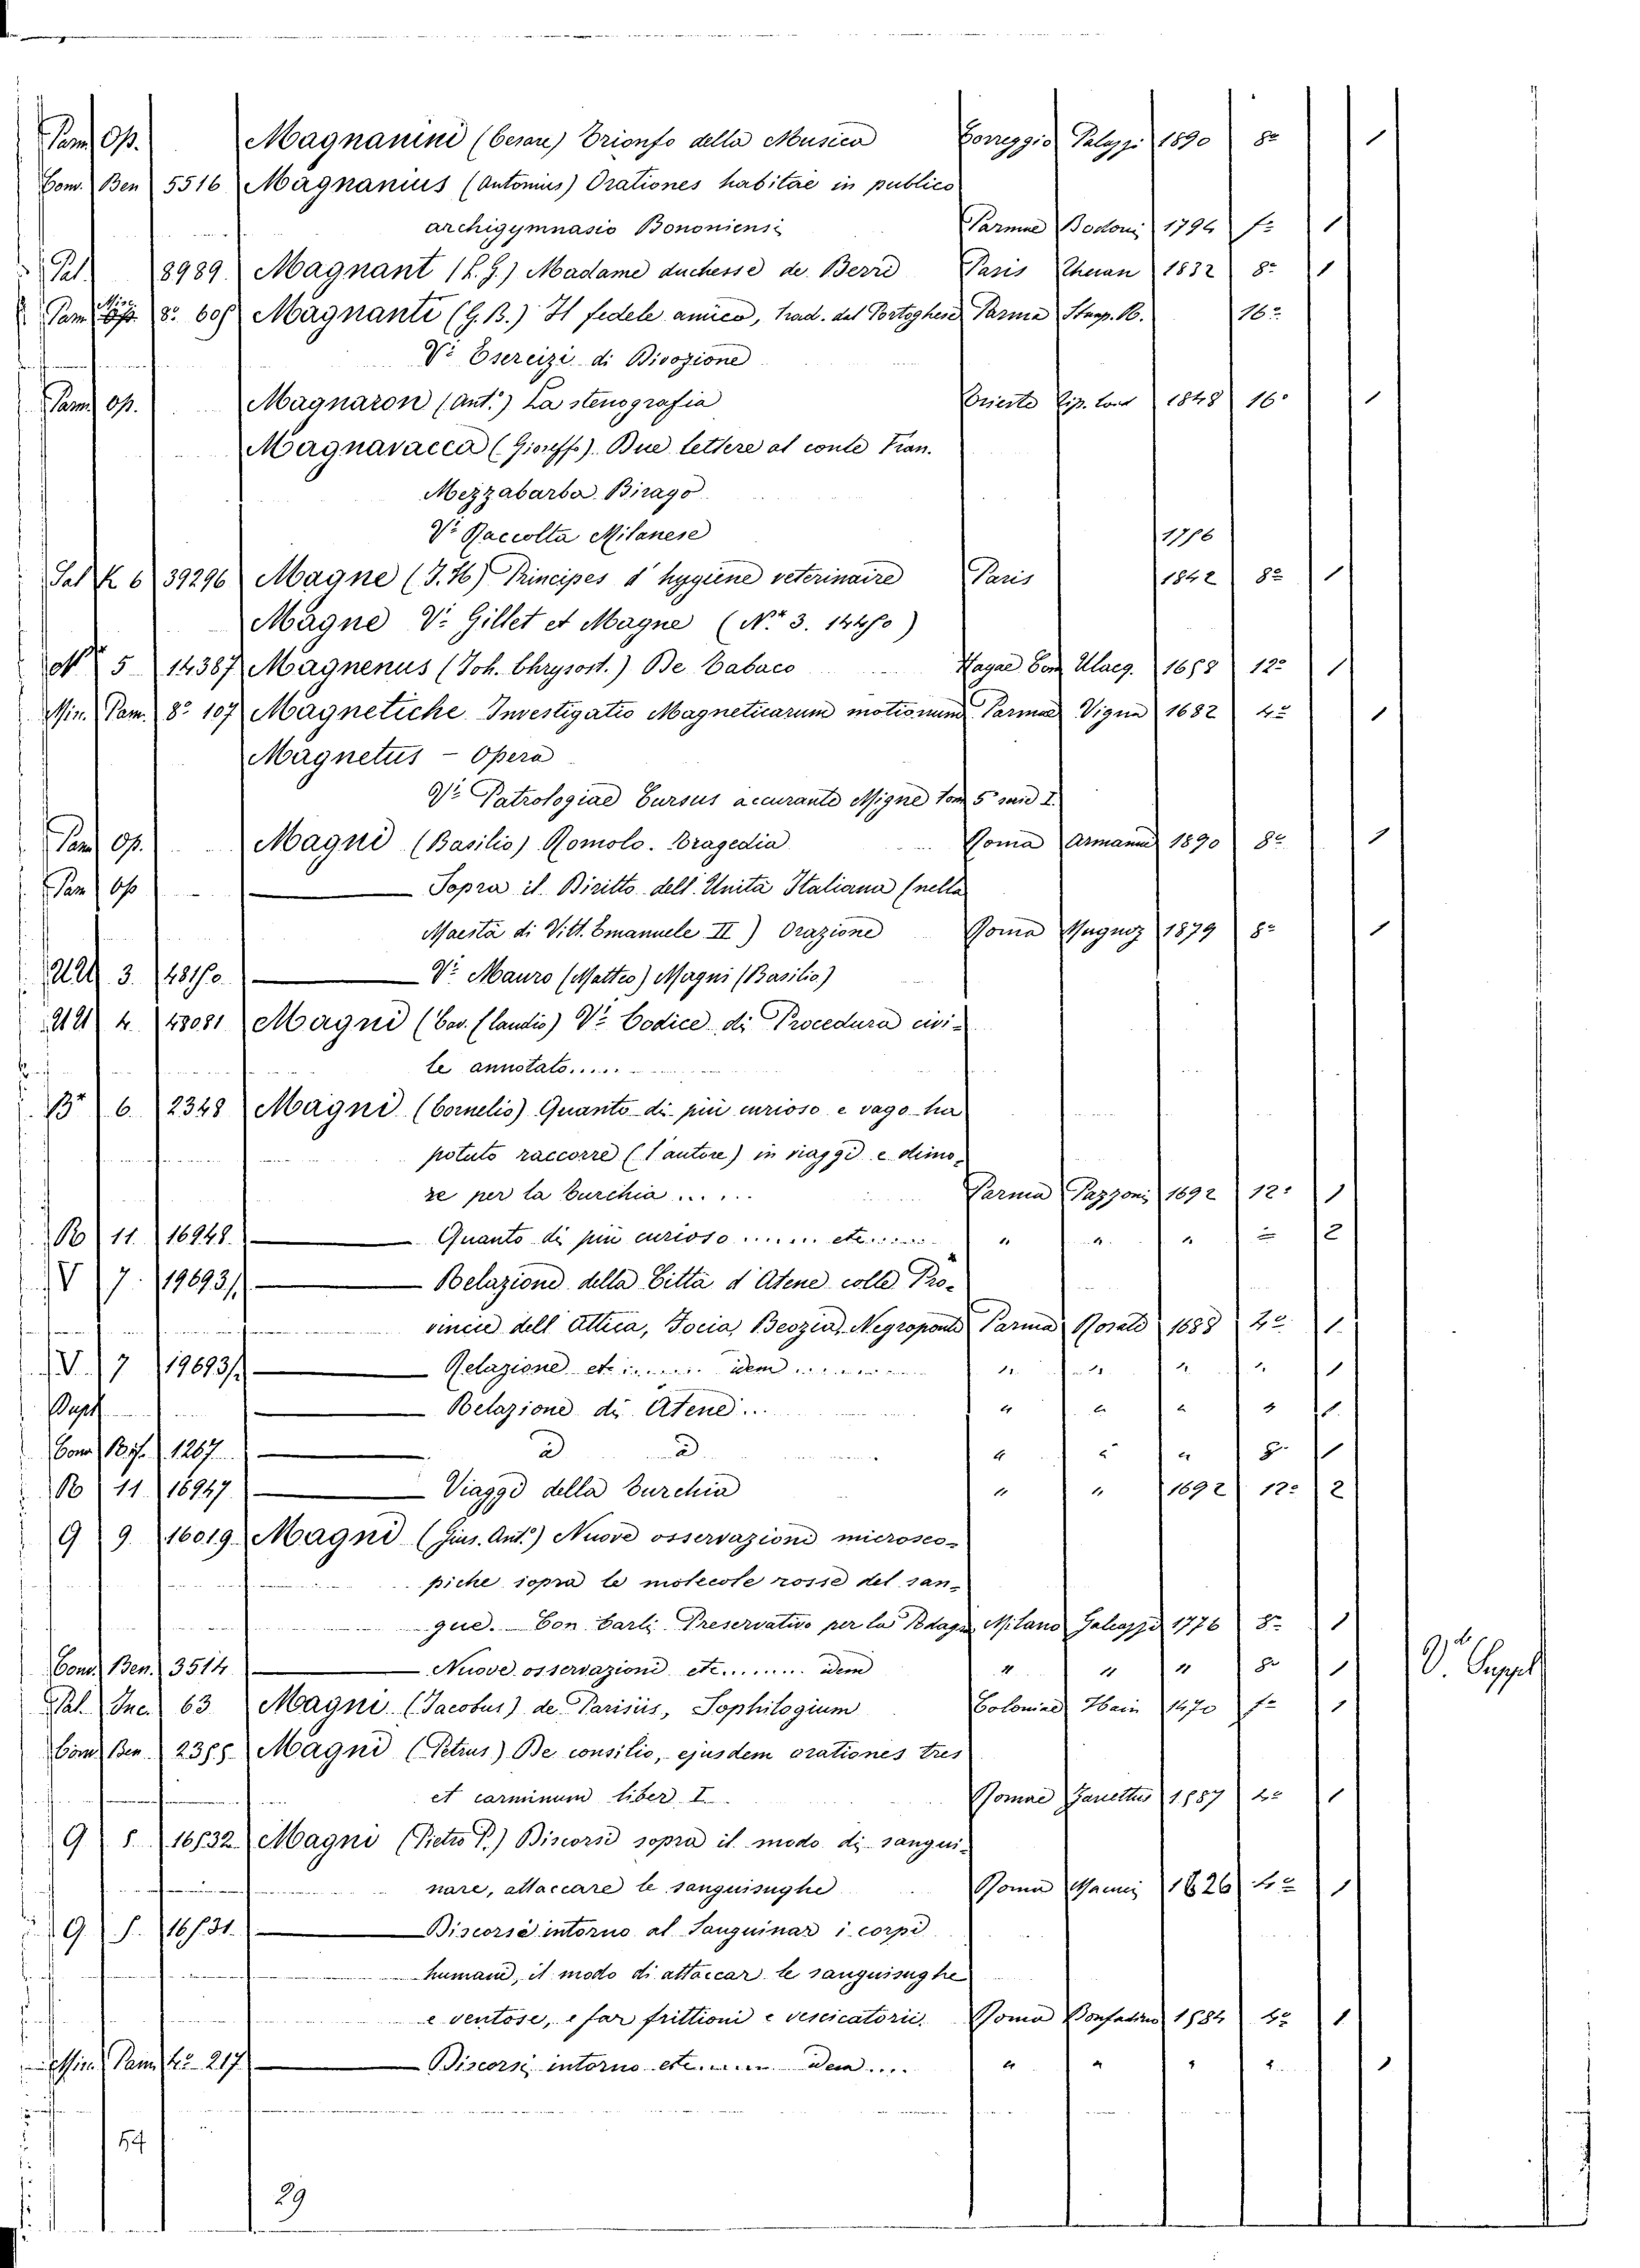 Pam. Op. Magnanini (Cesare) Trionfo della Musica Correggio Palazzi 1890 8º 1
Com. Ben 5516 Magnanius (Antonius) Orationes habitae in publico
archigymnasio Bononiensi Parmae Bodoni 1794 fº 1
Pal. 8989 Magnant (L. G.) Madame duchesse de Berri Paris Thuan 1832 8º 1
Pam. Misc. 8º 60 Magnanti (G. B.) Il fedele amico, trad. dal Portoghese Parma Stamp. R. 16º
Vi Esercizi di Divozione
Pam. Op. Magnaron (Ant.) La stenografia Trieste Tip. Lond 1848 16º 1
Magnavacca (Gioseffo) Due lettere al conte Fran.
Mezzabarba Birago
Vi Raccolta Milanese 1756
Sal. K 6 39296 Magne (J. H.) Principes d'hygiene veterinaire Paris 1842 8º 1
Magne Vi Gillet et Magne (Nº 3. 14450)
Nº 5 14387 Magnenus (Joh. Chrysost.) De Tabaco Hagae Com Ulacq. 1658 12º 1
Min. Pam. 8º 107 Magnetiche Investigatio Magneticarum motionum Parmae Vigna 1682 4º 1
Magnetus - Opera
Vi Patrologiae Cursus accurante Migne tom 5
Pam. Op. Magni (Basilio) Romolo. Tragedia Roma Armanni 1890 8º 1
Pam. Op. Sopra il Diritto dell'Unità Italiana (nella
Maestà di Vitt. Emanuele II) Orazione Roma Mugnoz 1879 8º 1
UU 3. 48150 Vi Mauro (Matteo) Magni (Basilio)
UU 4 48081 Magni (Cav. Claudio) Vi Codice di Procedura civi-
le annotato......
Bº 6 2348 Magni (Cornelio) Quanto di più curioso e vago ha
potuto raccorre (l'autore) in viaggi e dimo-
re per la Turchia...... Parma Pazzoni 1692 12º 1
R 11 16948 Quanto di più curioso...... etc...... " " " = 2
V 7. 19693/1 Relazione della Città d'Atene colle Pro-
vincie dell'Attica, Focia, Beozia, Negroponte Parma Rosati 1688 4º 1
V. 7 19693/2 Relazione etc...... idem...... " " " " 1
Dupl. Relazione di Atene... " " " " 1
Com. Bº 1267 d d " " " 8º 1
R 11 16947 Viaggi della Turchia " " 1692 12º 2
G 9 16019 Magni (Gius. Ant.) Nuove osservazioni microsco-
piche sopra le molecole rosse del san-
gue. Con Carli Preservativo per la Podagra Milano Galeazzi 1776 8º 1
Com. Ben. 3514 Nuove osservazioni etc...... idem " " " 8º 1 Vº Suppl
Pal. Inc. 63 Magni (Jacobus) de Parisiis, Sophilogium Coloniae Hain 1470 fº 1
Com. Ben. 2355 Magni (Petrus) De consilio, ejusdem orationes tres
et carminum liber I Romae Zanettus 1587 4º 1
G 5 16532 Magni (Pietro P.) Discorsi sopra il modo di sangui-
nare, attaccare le sanguisughe Roma 1626 4º 1
G 5. 16531 Discorsi intorno al Sanguinar i corpi
humani, il modo di attaccar le sanguisughe
e ventose, e far frittioni e vescicatorii. Roma Bonfadino 1584 4º 1
Min. Pam. 4º 217 Discorsi intorno etc...... idem.... " " " " 1
54
29